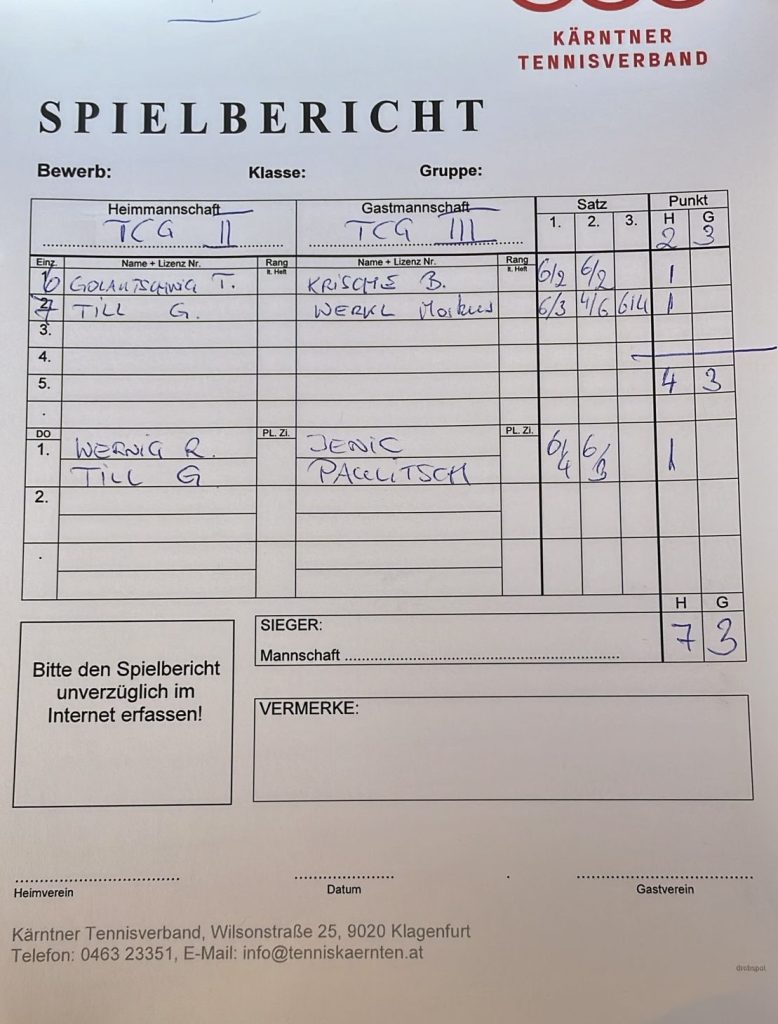 KÄRNTNER
TENNISVERBAND
SPIELBERICHT
Bewerb: Klasse: Gruppe:
Heimmannschaft Gastmannschaft Satz Punkt
TCG II TCG III 1. 2. 3. H G
2 3
Einz. Name + Lizenz Nr. Rang lt. Heft Name + Lizenz Nr. Rang lt. Heft
6 T. KRISCHE B. 6/2 6/2 1
7 TILL G. WERKL Markus 6/3 4/6 6/4 1
3.
4.
5. 4 3
.
DO PL. Zi. PL. Zi.
1. WERNIG R. JENIC 6/4 6/3 1
TILL G PAULITSCH
2.
.
H G
SIEGER: 7 3
Mannschaft
Bitte den Spielbericht
unverzüglich im
Internet erfassen!
VERMERKE:
Heimverein Datum Gastverein
Kärntner Tennisverband, Wilsonstraße 25, 9020 Klagenfurt
Telefon: 0463 23351, E-Mail: info@tenniskaernten.at
drobspol